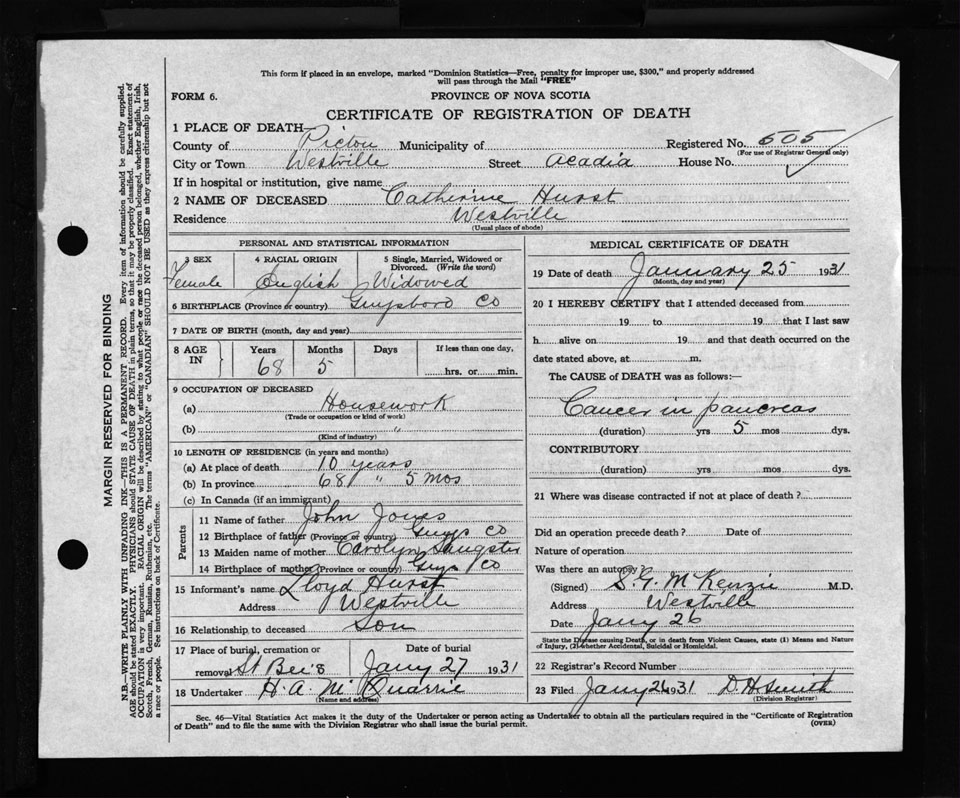 This form if placed in an envelope, marked "Dominion Statistics—Free, penalty for improper use, $300," and properly addressed
will pass through the Mail "FREE"
FORM 6.
PROVINCE OF NOVA SCOTIA
CERTIFICATE OF REGISTRATION OF DEATH
1 PLACE OF DEATH—
County of Pictou Municipality of Registered No. 505
(For use of Registrar General only)
City or Town Westville Street Acadia House No.
If in hospital or institution, give name
2 NAME OF DECEASED Catherine Hurst
Residence Westville
(Usual place of abode)
PERSONAL AND STATISTICAL INFORMATION
3 SEX 4 RACIAL ORIGIN 5 Single, Married, Widowed or
Divorced. (Write the word)
Female English Widowed
6 BIRTHPLACE (Province or country) Guysboro Co
7 DATE OF BIRTH (month, day and year)
8 AGE IN Years Months Days If less than one day,
68 5 hrs. or min.
9 OCCUPATION OF DECEASED
(a) Housework
(Trade or occupation or kind of work)
(b) "
(Kind of industry)
10 LENGTH OF RESIDENCE (in years and months)
(a) At place of death 10 years
(b) In province 68 " 5 mos
(c) In Canada (if an immigrant)
Parents
11 Name of father John Jones
12 Birthplace of father (Province or country) Guys Co
13 Maiden name of mother Carolyn Sangster
14 Birthplace of mother (Province or country) Guys Co
15 Informant's name Lloyd Hurst
Address Westville
16 Relationship to deceased Son
17 Place of burial, cremation or Date of burial
removal St Bee's Jany 27 1931
18 Undertaker H. A. McQuarrie
(Name and address)
MEDICAL CERTIFICATE OF DEATH
19 Date of death January 25 1931
(Month, day and year)
20 I HEREBY CERTIFY that I attended deceased from
19 to 19 that I last saw
h alive on 19 and that death occurred on the
date stated above, at m.
The CAUSE of DEATH was as follows:—
Cancer in pancreas
(duration) yrs 5 mos dys.
CONTRIBUTORY
(duration) yrs. mos. dys.
21 Where was disease contracted if not at place of death?
Did an operation precede death? Date of
Nature of operation
Was there an autopsy
(Signed) S. G. McKenzie M.D.
Address Westville
Date Jany 26
State the Disease causing Death, or in death from Violent Causes, state (1) Means and Nature
of Injury, (2) whether Accidental, Suicidal or Homicidal.
22 Registrar's Record Number
23 Filed Jany 26 1931 D. H. Smith
(Division Registrar)
Sec. 46—Vital Statistics Act makes it the duty of the Undertaker or person acting as Undertaker to obtain all the particulars required in the "Certificate of Registration
of Death" and to file the same with the Division Registrar who shall issue the burial permit.
(OVER)
MARGIN RESERVED FOR BINDING
N.B.—WRITE PLAINLY WITH UNFADING INK—THIS IS A PERMANENT RECORD. Every item of information should be carefully supplied.
AGE should be stated EXACTLY. PHYSICIANS should STATE CAUSE OF DEATH in plain terms, so that it may be properly classified. Exact statement of
OCCUPATION is very important. RACIAL ORIGIN will be described by stating to what people or race the deceased person belonged, whether English, Irish,
Scotch, French, German, Russian, Ruthenian, etc. The terms "AMERICAN" or "CANADIAN" SHOULD NOT BE USED as they express citizenship but not
a race or people. See instructions on back of Certificate.